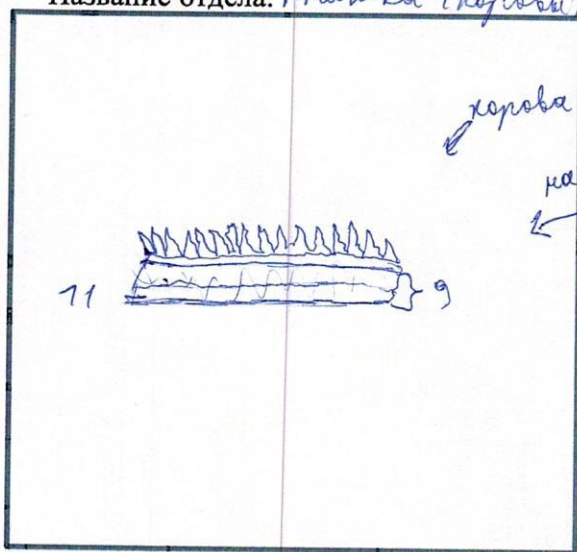 Название отдела:
корова
на
11
9